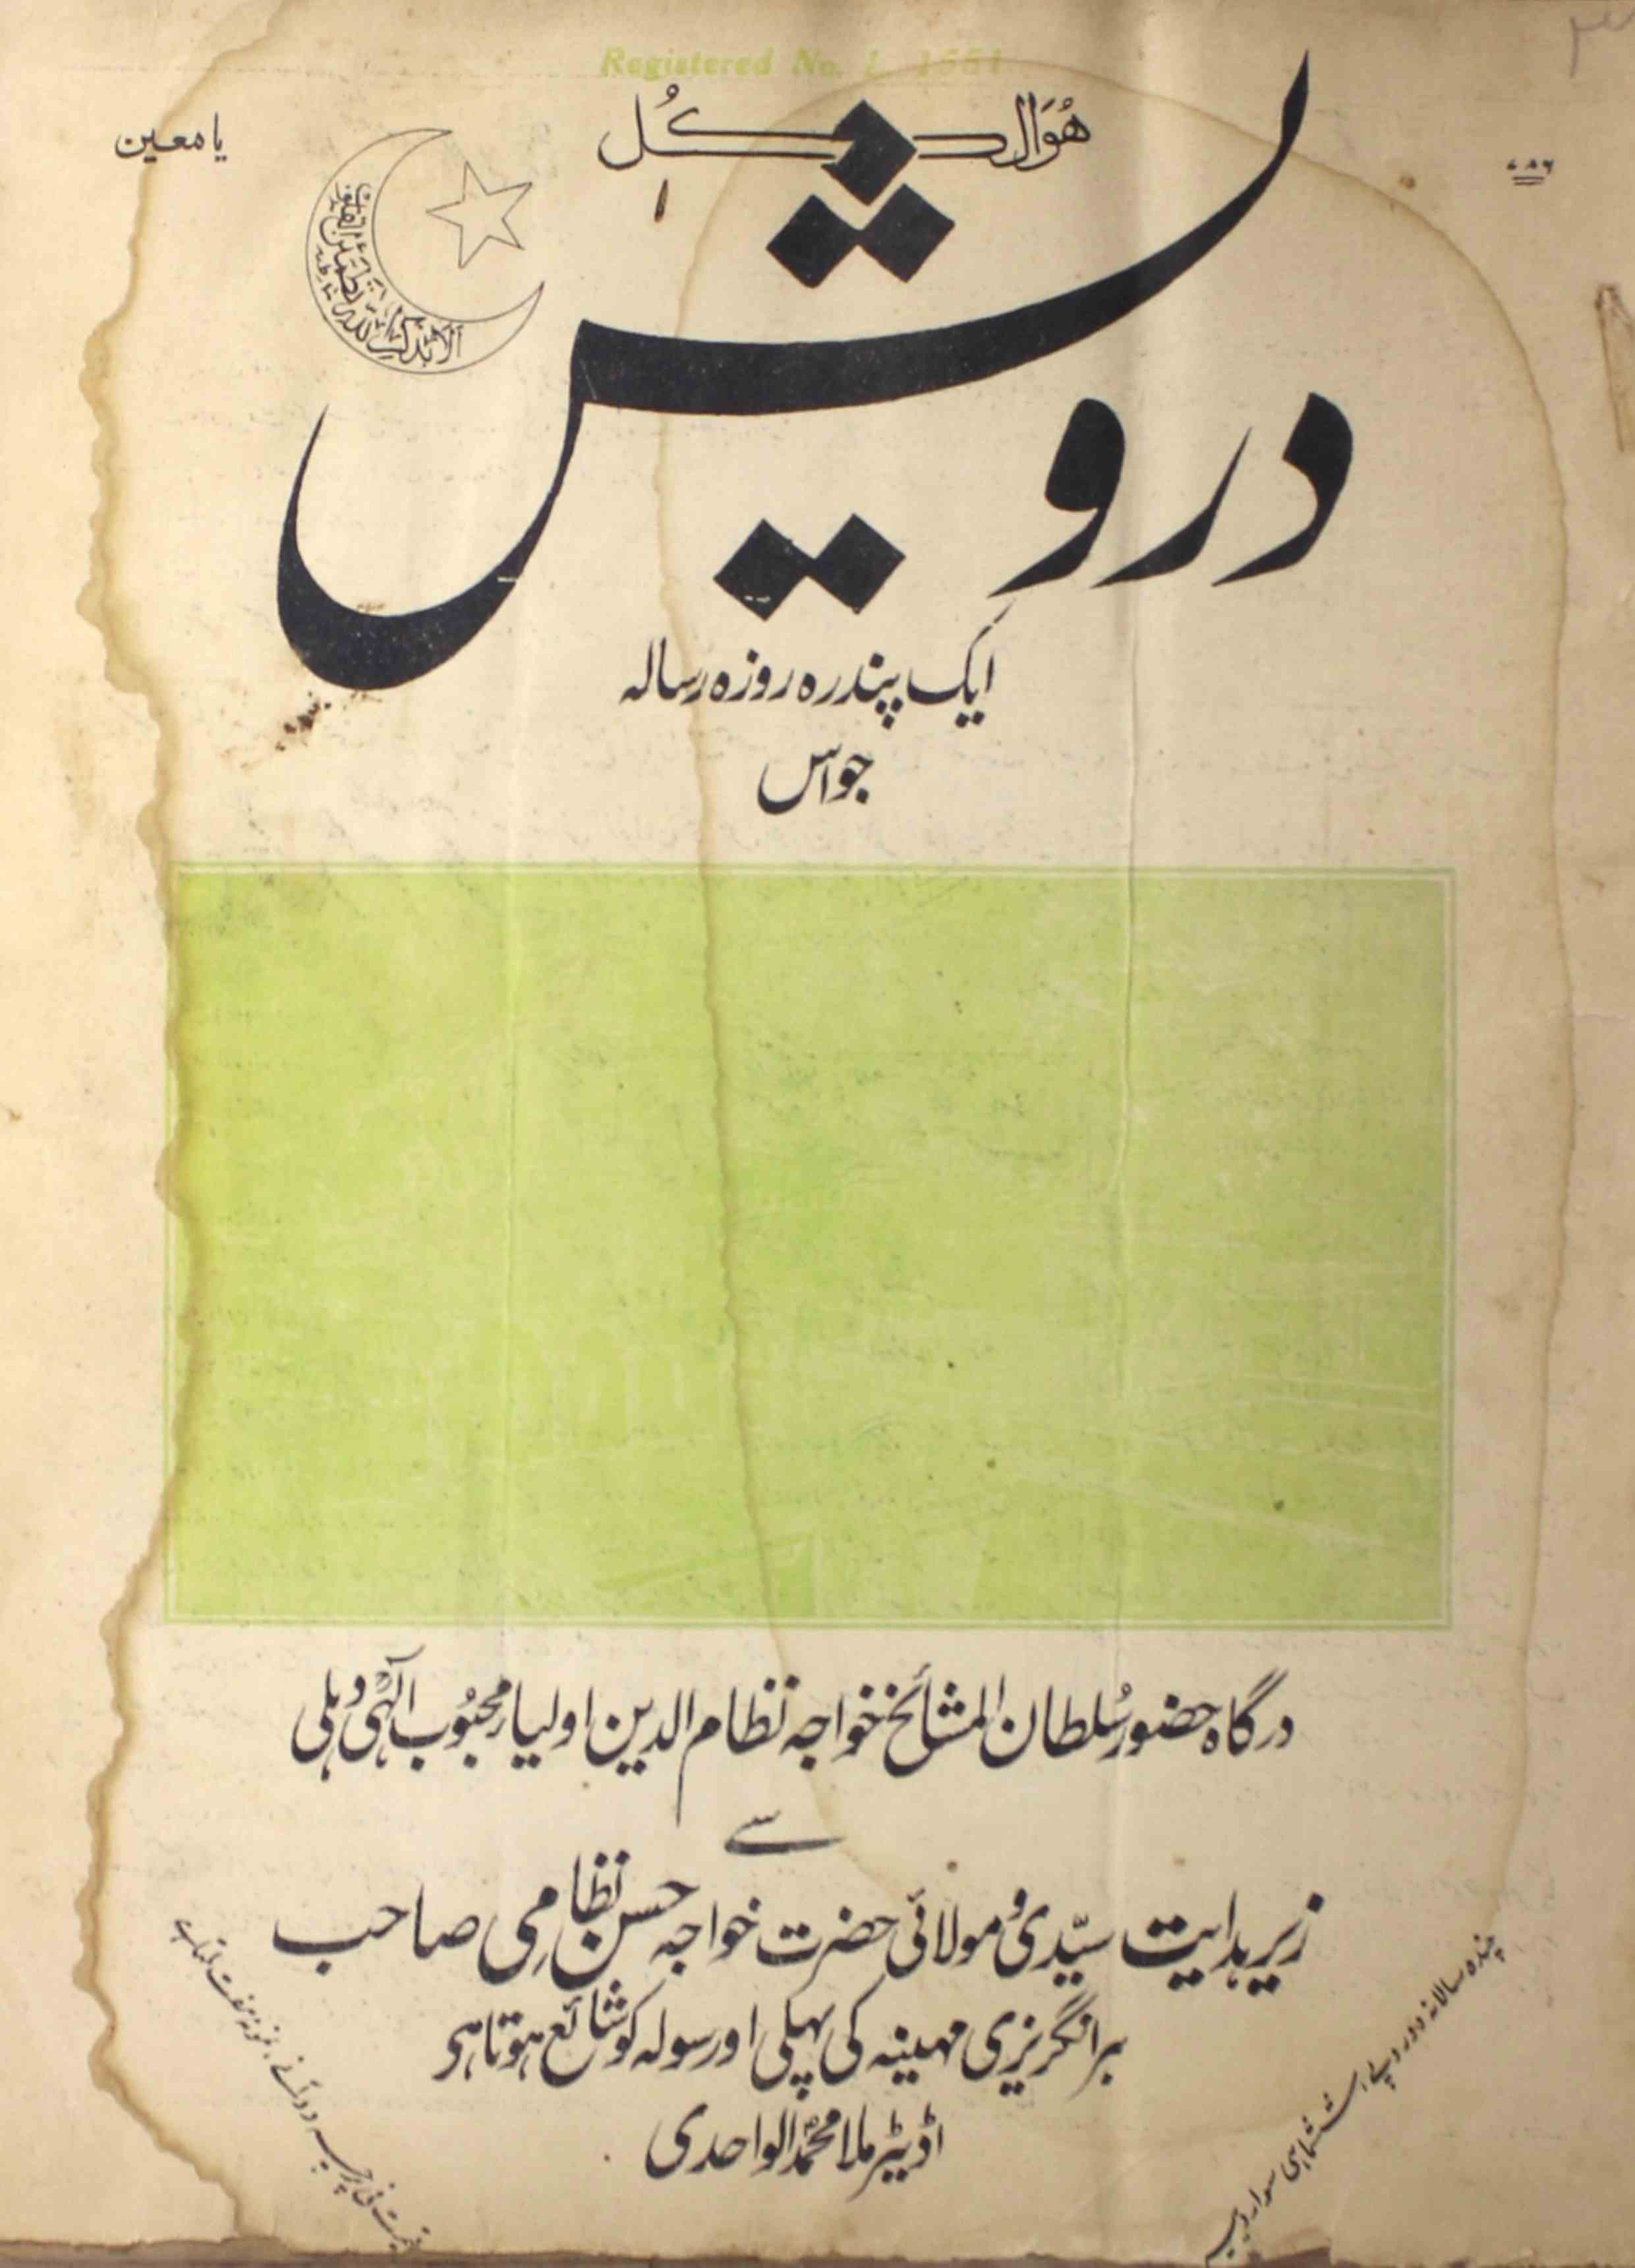 Registered No. L. 1551
۷۸۶
ھُوَالکُل
یامعین
الا بذکر اللہ تطمئن القلوب
درویش
ایک پندرہ روزہ رسالہ
جواس
درگاہ حضور سُلطان المشائخ خواجہ نظام الدین اولیاء محبُوب الٰہی دہلی
سے
زیر ہدایت سیّدی و مولائی حضرت خواجہ حسن نظامی صاحب
ہر انگریزی مہینہ کی پہلی اور سولہ کو شائع ہوتا ہی
اڈیٹر ملا محمدؐ الواحدی
چندہ سالانہ دو روپے، ششماہی سوا روپیہ
قیمت فی پرچہ دو آنے، نمونہ مفت